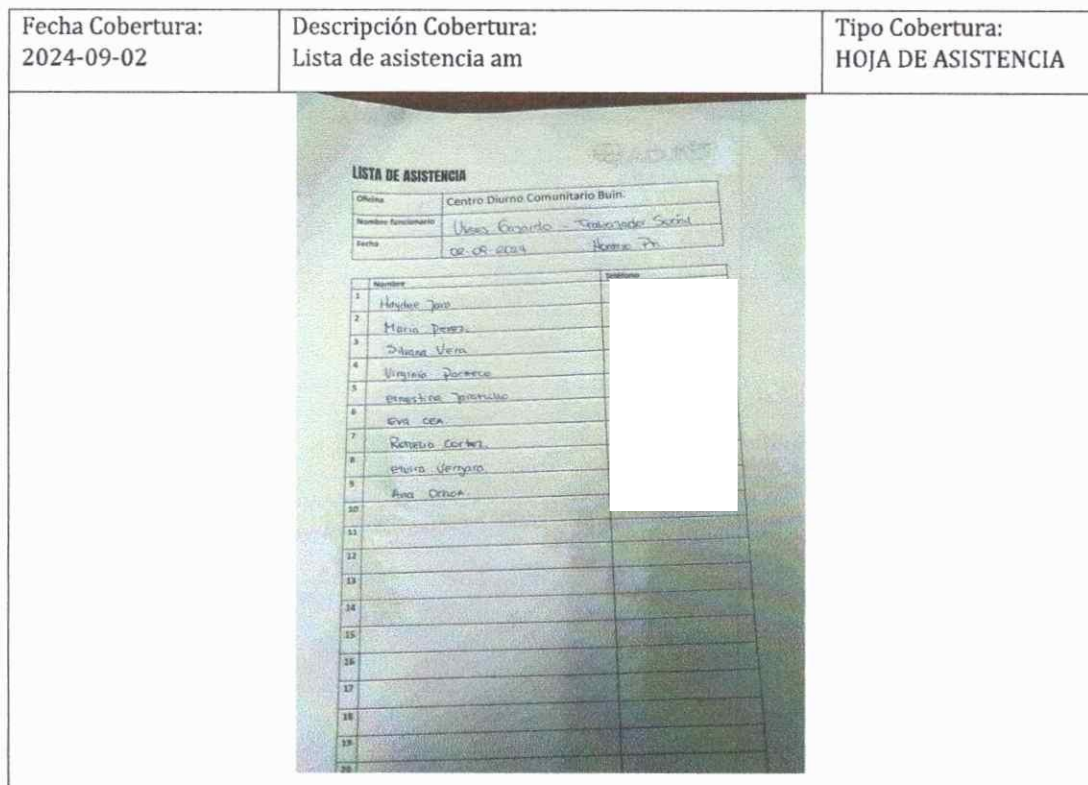 Fecha Cobertura:
2024-09-02
Descripción Cobertura:
Lista de asistencia am
Tipo Cobertura:
HOJA DE ASISTENCIA
LISTA DE ASISTENCIA
Oficina Centro Diurno Comunitario Buin.
Nombre funcionario Ulises Gajardo - Trabajador Social
Fecha 02-09-2024 Horario Pm
Nombre Teléfono
1 Haydee Jara
2 Maria Perez.
3 Silvana Vera
4 Virginia Pacheco
5 ernestina Jaramillo
6 Eva CEA
7 Cortez.
8 elvira Vergara
9 Ana Ochoa
10
11
12
13
14
15
16
17
18
19
20